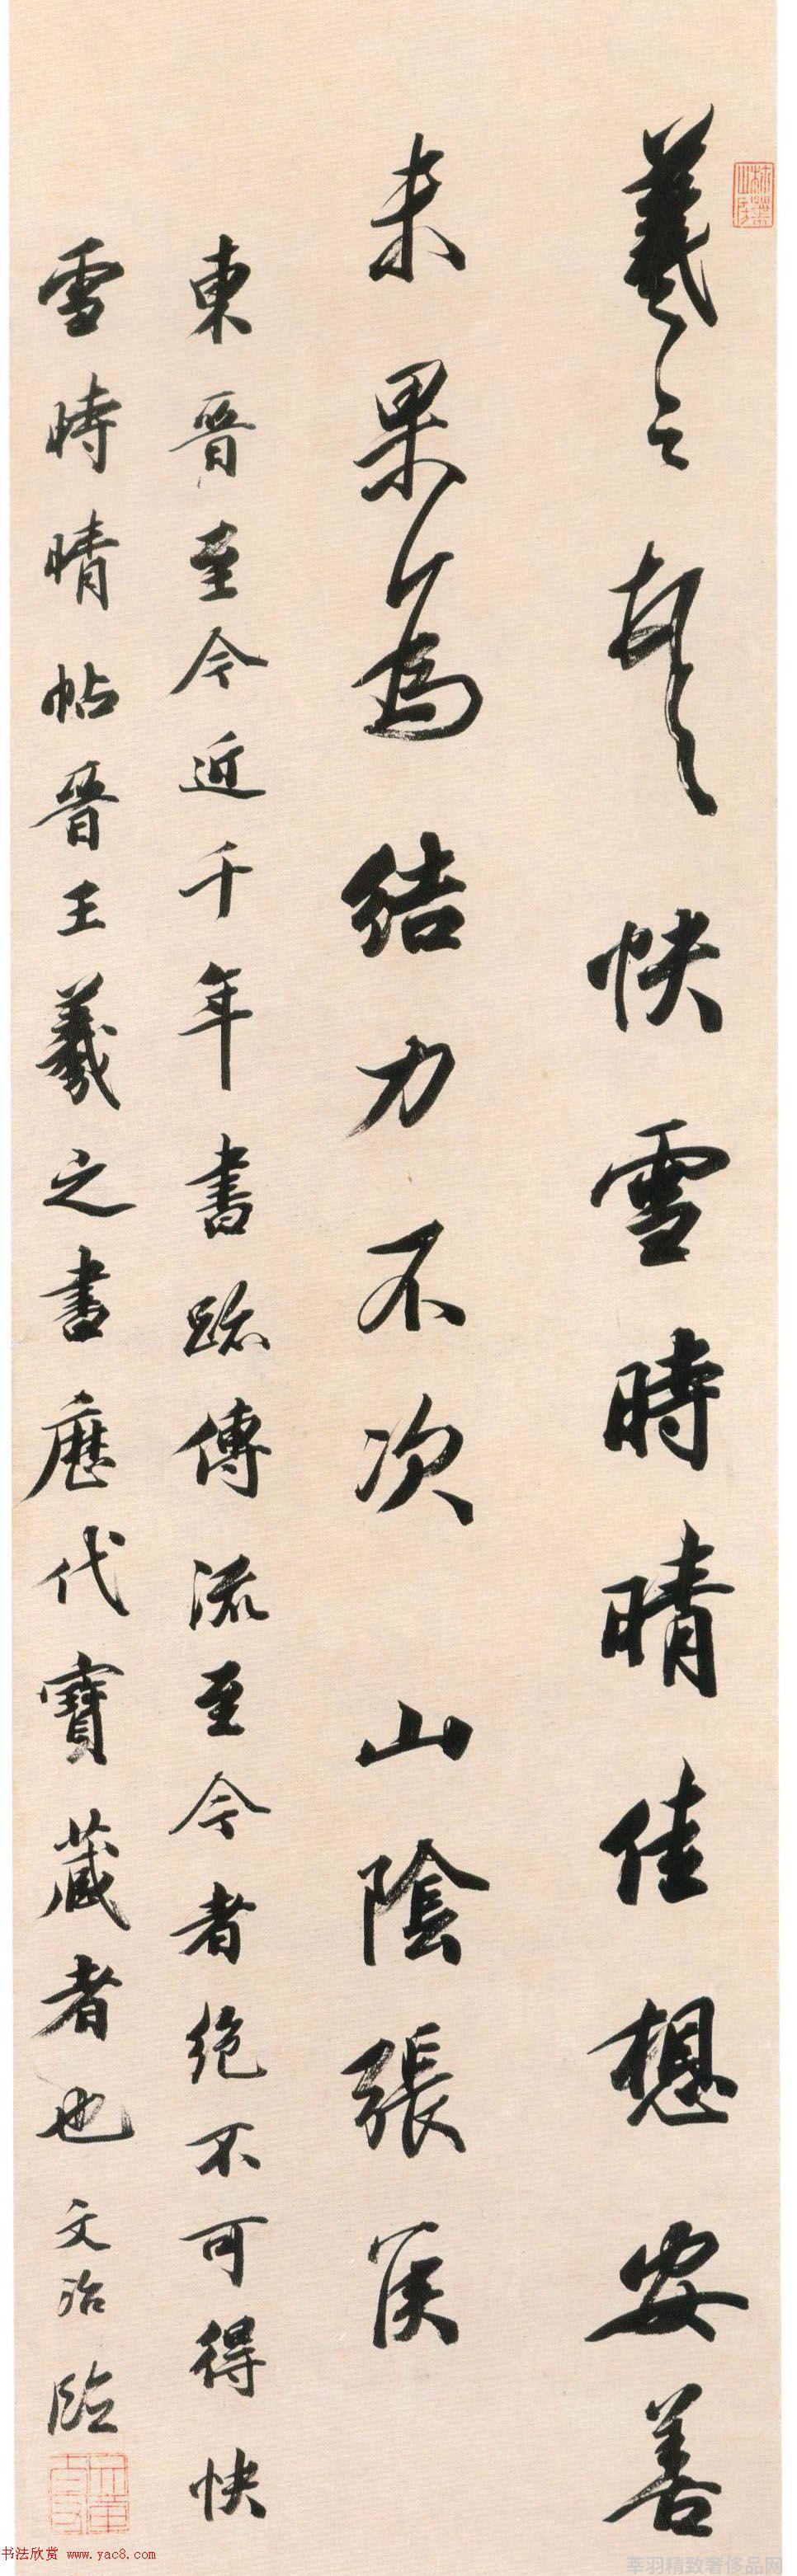 羲之頓首快雪時晴佳想安善
未果為結力不次 山陰張侯
東晉至今近千年書跡傳流至今者絶不可得快
雪時晴帖晉王羲之書歷代寶藏者也 文治臨
书法欣赏 www.yac8.com
莘羽精致奢侈品网